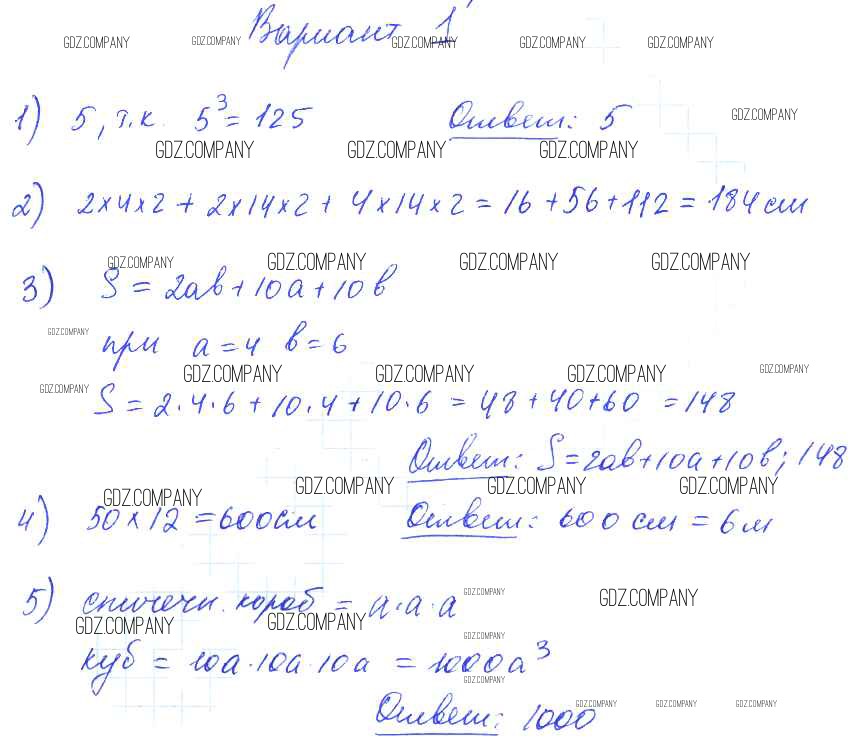 Вариант 1
GDZ.COMPANY GDZ.COMPANY GDZ.COMPANY GDZ.COMPANY GDZ.COMPANY
1) 5, т.к. 5³ = 125 Ответ: 5
GDZ.COMPANY
GDZ.COMPANY GDZ.COMPANY GDZ.COMPANY
2) 2×4×2 + 2×14×2 + 4×14×2 = 16 + 56 + 112 = 184 см
GDZ.COMPANY GDZ.COMPANY GDZ.COMPANY GDZ.COMPANY
3) S = 2ab + 10a + 10b
GDZ.COMPANY
при a = 4 b = 6
GDZ.COMPANY GDZ.COMPANY GDZ.COMPANY GDZ.COMPANY
GDZ.COMPANY
S = 2·4·6 + 10·4 + 10·6 = 48 + 40 + 60 = 148
Ответ: S = 2ab + 10a + 10b; 148
GDZ.COMPANY GDZ.COMPANY GDZ.COMPANY GDZ.COMPANY
4) 50 × 12 = 600 см Ответ: 600 см = 6 м
GDZ.COMPANY GDZ.COMPANY
5) спичечн. короб = a·a·a
GDZ.COMPANY GDZ.COMPANY GDZ.COMPANY
куб = 10a·10a·10a = 1000a³
GDZ.COMPANY
GDZ.COMPANY GDZ.COMPANY GDZ.COMPANY
Ответ: 1000